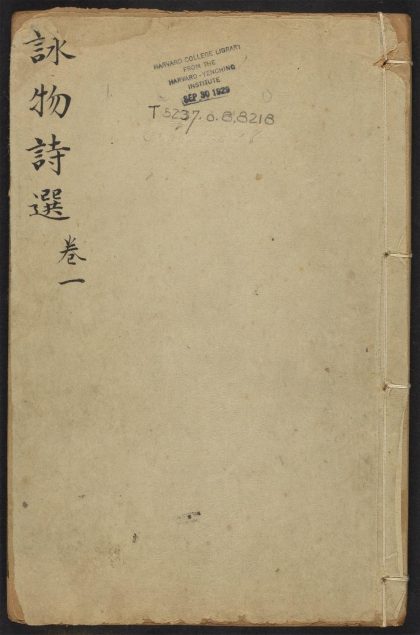 詠物詩選
卷一
HARVARD COLLEGE LIBRARY
FROM THE
HARVARD-YENCHING
INSTITUTE
SEP 30 1929
T 5237.08.8218